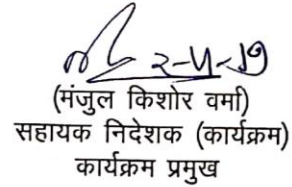 2-4-19
(मंजुल किशोर वर्मा)
सहायक निदेशक (कार्यक्रम)
कार्यक्रम प्रमुख